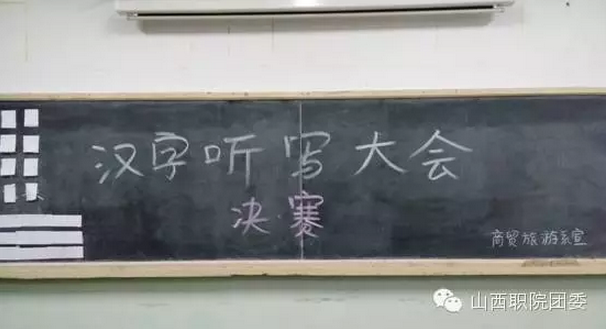 汉字听写大会
决赛
商贸旅游系宣
山西职院团委